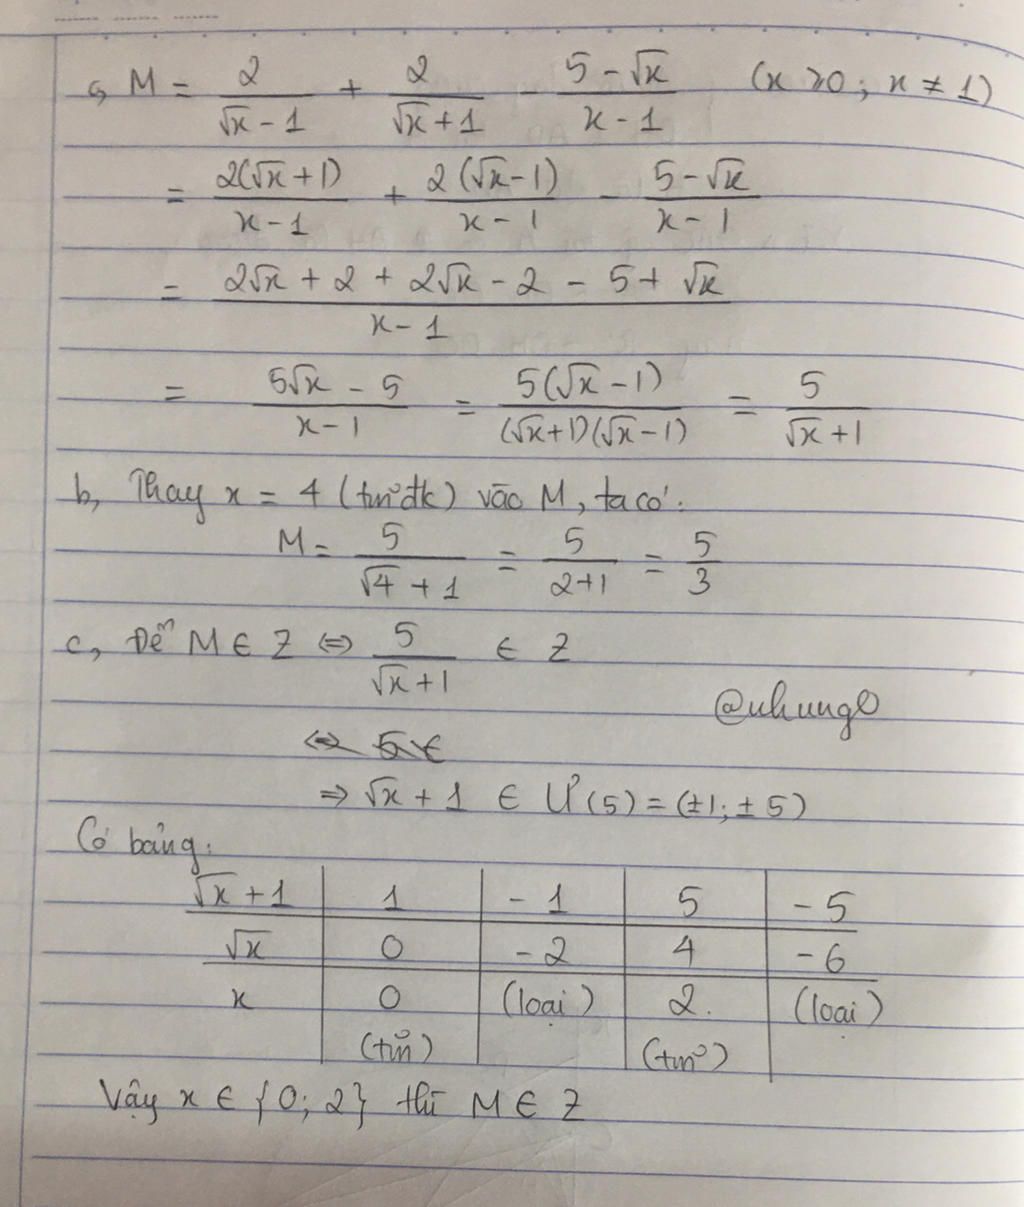 a, M = 2/(√x - 1) + 2/(√x + 1) - (5 - √x)/(x - 1) (x ≥ 0; x ≠ 1)
= 2(√x + 1)/(x - 1) + 2(√x - 1)/(x - 1) - (5 - √x)/(x - 1)
= (2√x + 2 + 2√x - 2 - 5 + √x)/(x - 1)
= (5√x - 5)/(x - 1) = 5(√x - 1)/((√x + 1)(√x - 1)) = 5/(√x + 1)
b, Thay x = 4 (tm đk) vào M, ta có:
M = 5/(√4 + 1) = 5/(2+1) = 5/3
c, Để M ∈ Z ⇔ 5/(√x + 1) ∈ Z
@nhung
⇔ 5 ∈
⇒ √x + 1 ∈ Ư(5) = (±1; ±5)
Có bảng:
√x + 1 | 1 | -1 | 5 | -5
√x | 0 | -2 | 4 | -6
x | 0 | (loại) | 2. | (loại)
(tm) (tm)
Vậy x ∈ {0; 2} thì M ∈ Z